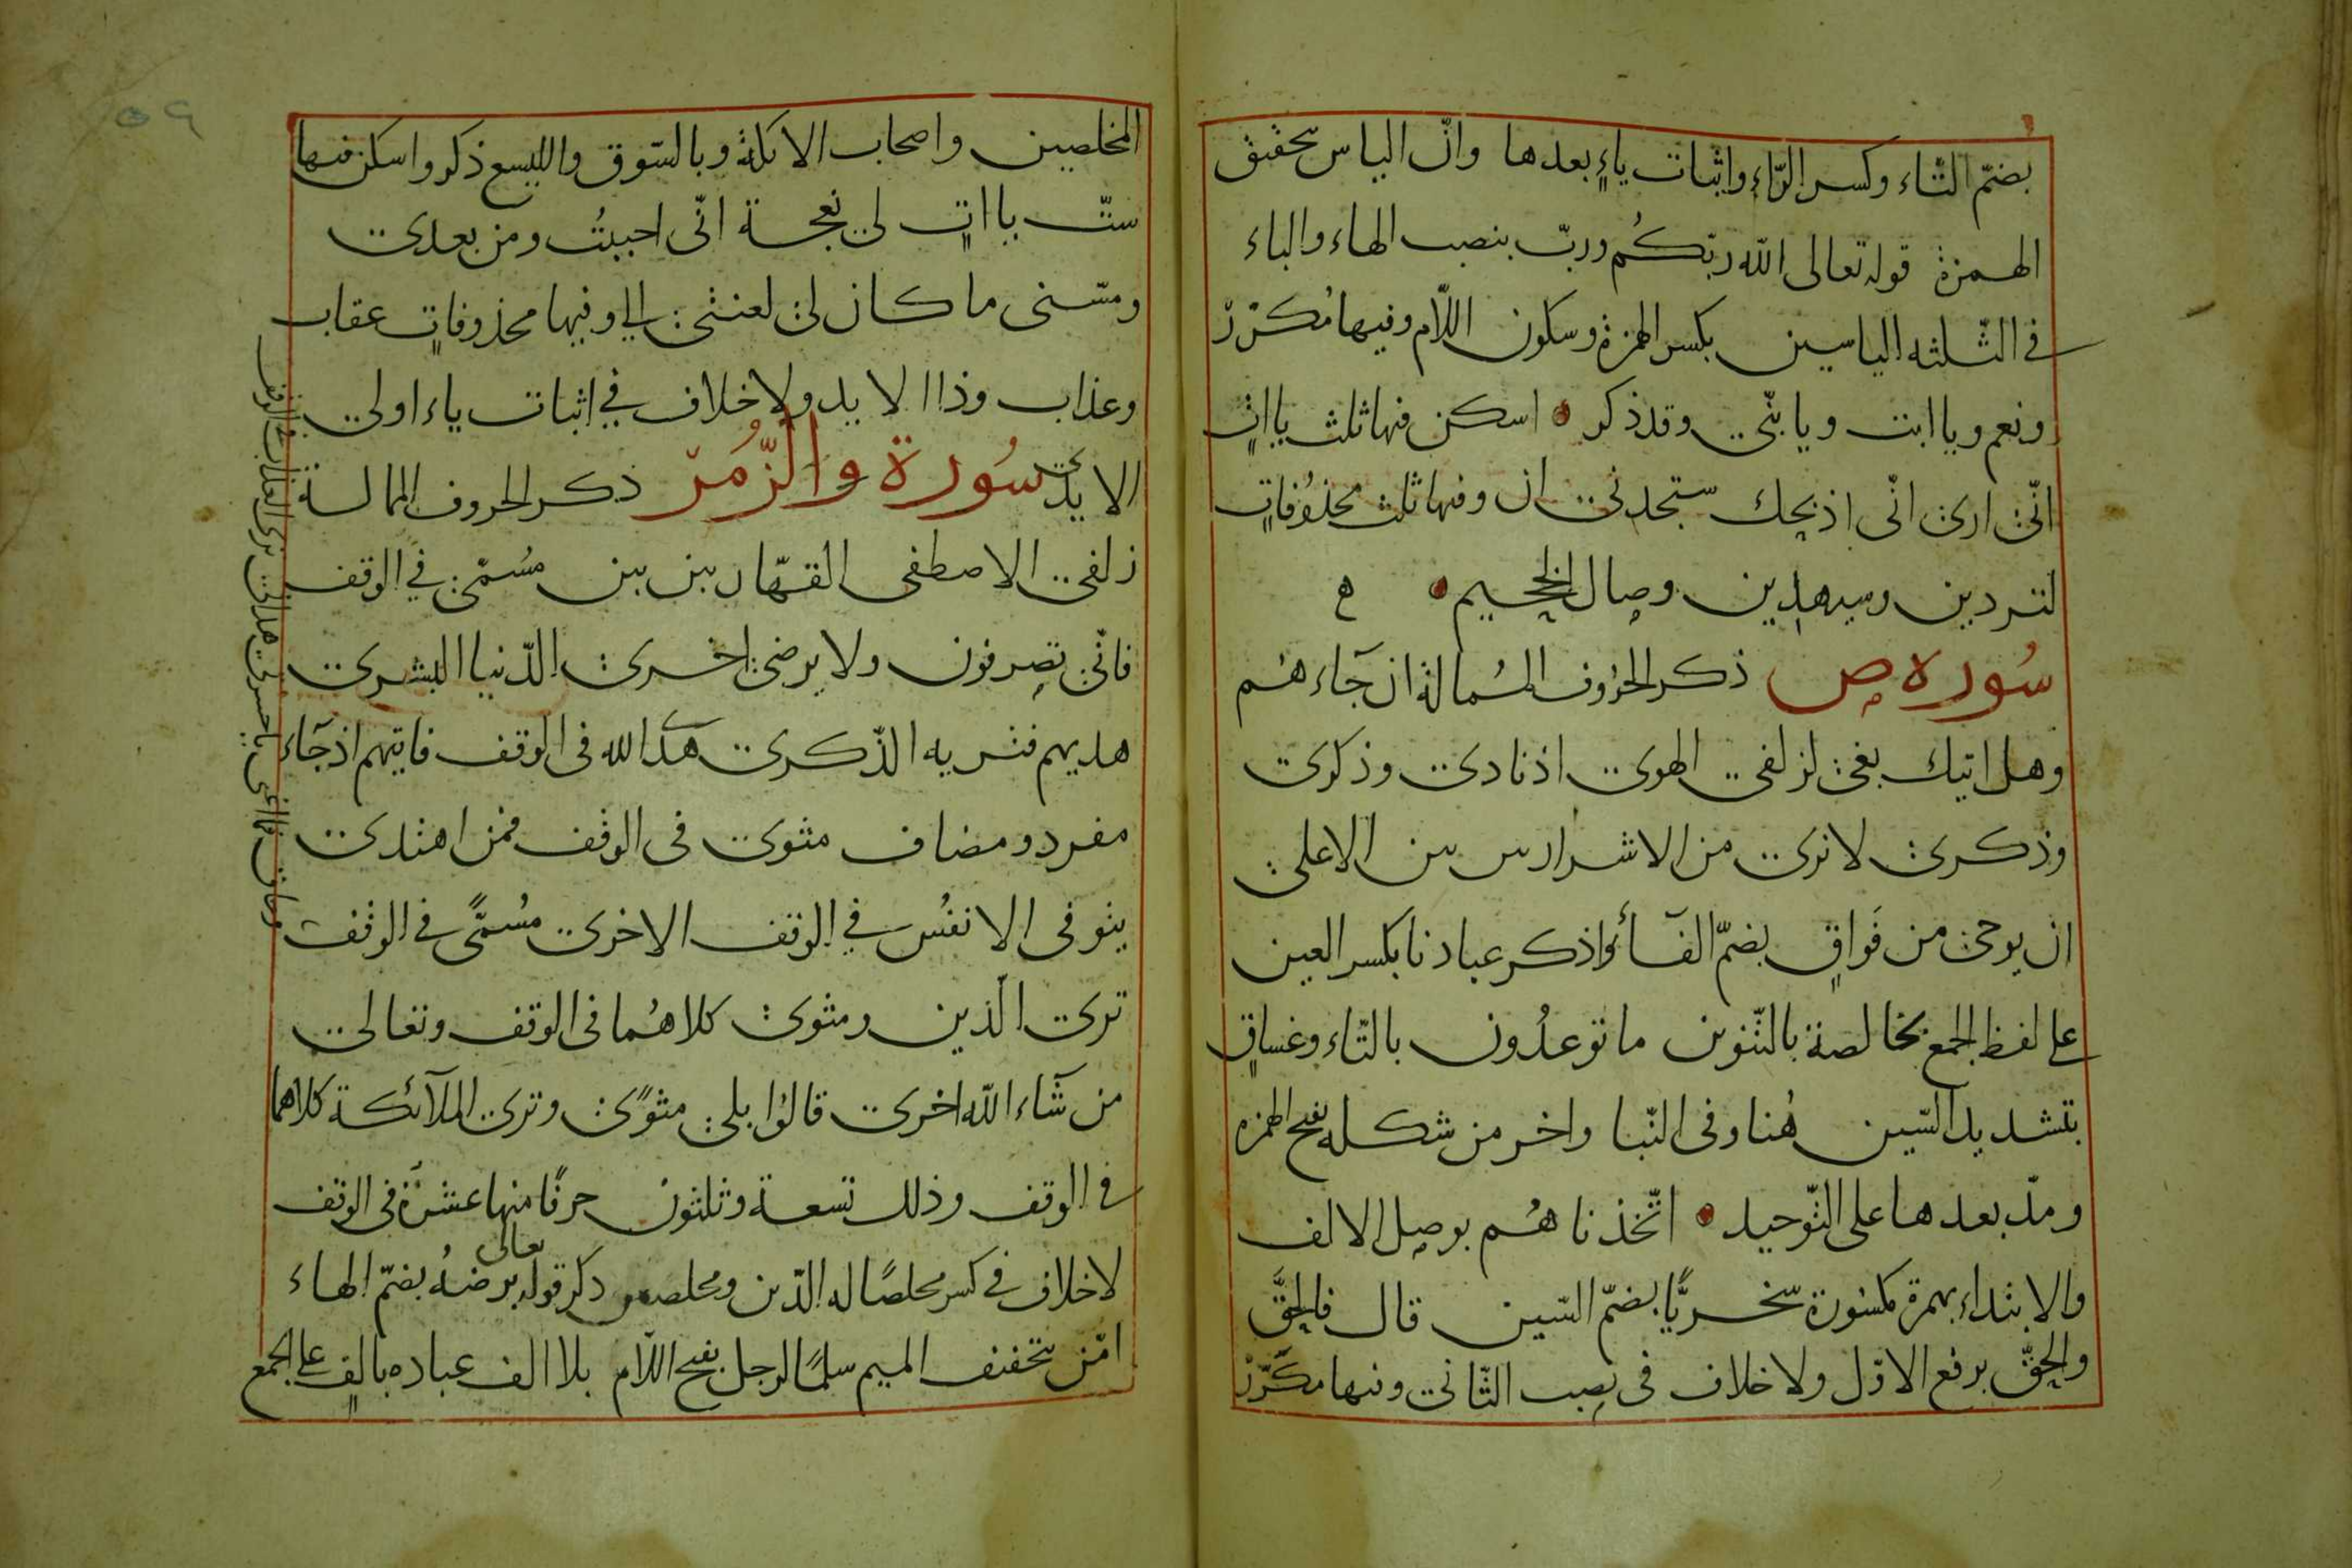 بضمّ التّاء وكسر الرّاء واثبات ياءٍ بعدها وانّ الياس بتحقيق
الهمزة قوله تعالى الله ربّكُم وربّ بنصب الهاء والباء
في الثّلثه الياسين بكسر الهمزة وسكون اللّام وفيها مُكرّرّ
ونعم ويا ابت ويا بنّى وقد ذكر اسكن فيها ثلث يا اتٍ
انّى ارى انّى اذبحك ستجدنى ان وفيها ثلث محذوُفاتٍ
لتردين وسيهدين وصال الجحيم ه
سُوره ص ذكر الحرُوف المُمالة ان جآءهُم
وهل اتيك بغى لزلفى الهوى اذ نادى وذكرى
وذكرى لا نرى من الاشرار بين بين الاعلى
ان يوحى من فَواقٍ بضمّ الفآء واذكر عبادنا بكسر العين
على لفظ الجمع بخالصة بالتّنوين ما توعدُون بالتّاء وغساقٍ
بتشديد السّين هُنا وفى النّبا واخر من شكله بفتح الهمزه
ومدّ بعدها على التّوحيد اتّخذناهُم بوصل الالف
والابتداء بهمزة مكسورة سّخريًّا بضمّ السّين قال فالحقَّ
والحقّ برفع الاوّل ولا خلاف فى نصب الثّانى وفيها مكَرّرّ
المخلصين واصحاب الايكة وبالسّوق والليسع ذكر واسكن فيها
ستّ يا اتٍ لى نعجة انّى احببتُ ومن بعدى
ومسّنى ما كان لى لعنتى الى وفيها محذوفاتٍ عقاب
وعذاب وذا الايد ولا خلاف في اثبات ياء اولى
الايدى سُورة والزُّمَرّ ذكر الحروف الممالة
زلفى الاصطفى القهّار بين بين مُسمّى في الوقف
فانّى تصرفون ولا يرضى اخرى الدّنيا البشرى
هديهم فتريه الذّكرى هدَى الله فى الوقف فاتيهم اذ جآء
مفرد ومضاف مثوى فى الوقف فمن اهتدى
يتوفى الانفُس في الوقف الاخرى مُسمًّى في الوقف
ترى الّذين ومثوى كلاهُما فى الوقف وتعالى
من شآء الله اخرى قالوُا بلى مثوًى وترى الملآئكة كلاهما
في الوقف وذلك تسعة وثلثون حرفًا منها عشرة فى الوقف
لا خلاف في كسر مخلصًا له الدّين ومخلصين ذكر قوله تعالى يرضهُ بضمّ الهاء
امّن بتخفيف الميم سلمًا لرجل بفتح اللّام بلا الف عباده بالفٍ على الجمع